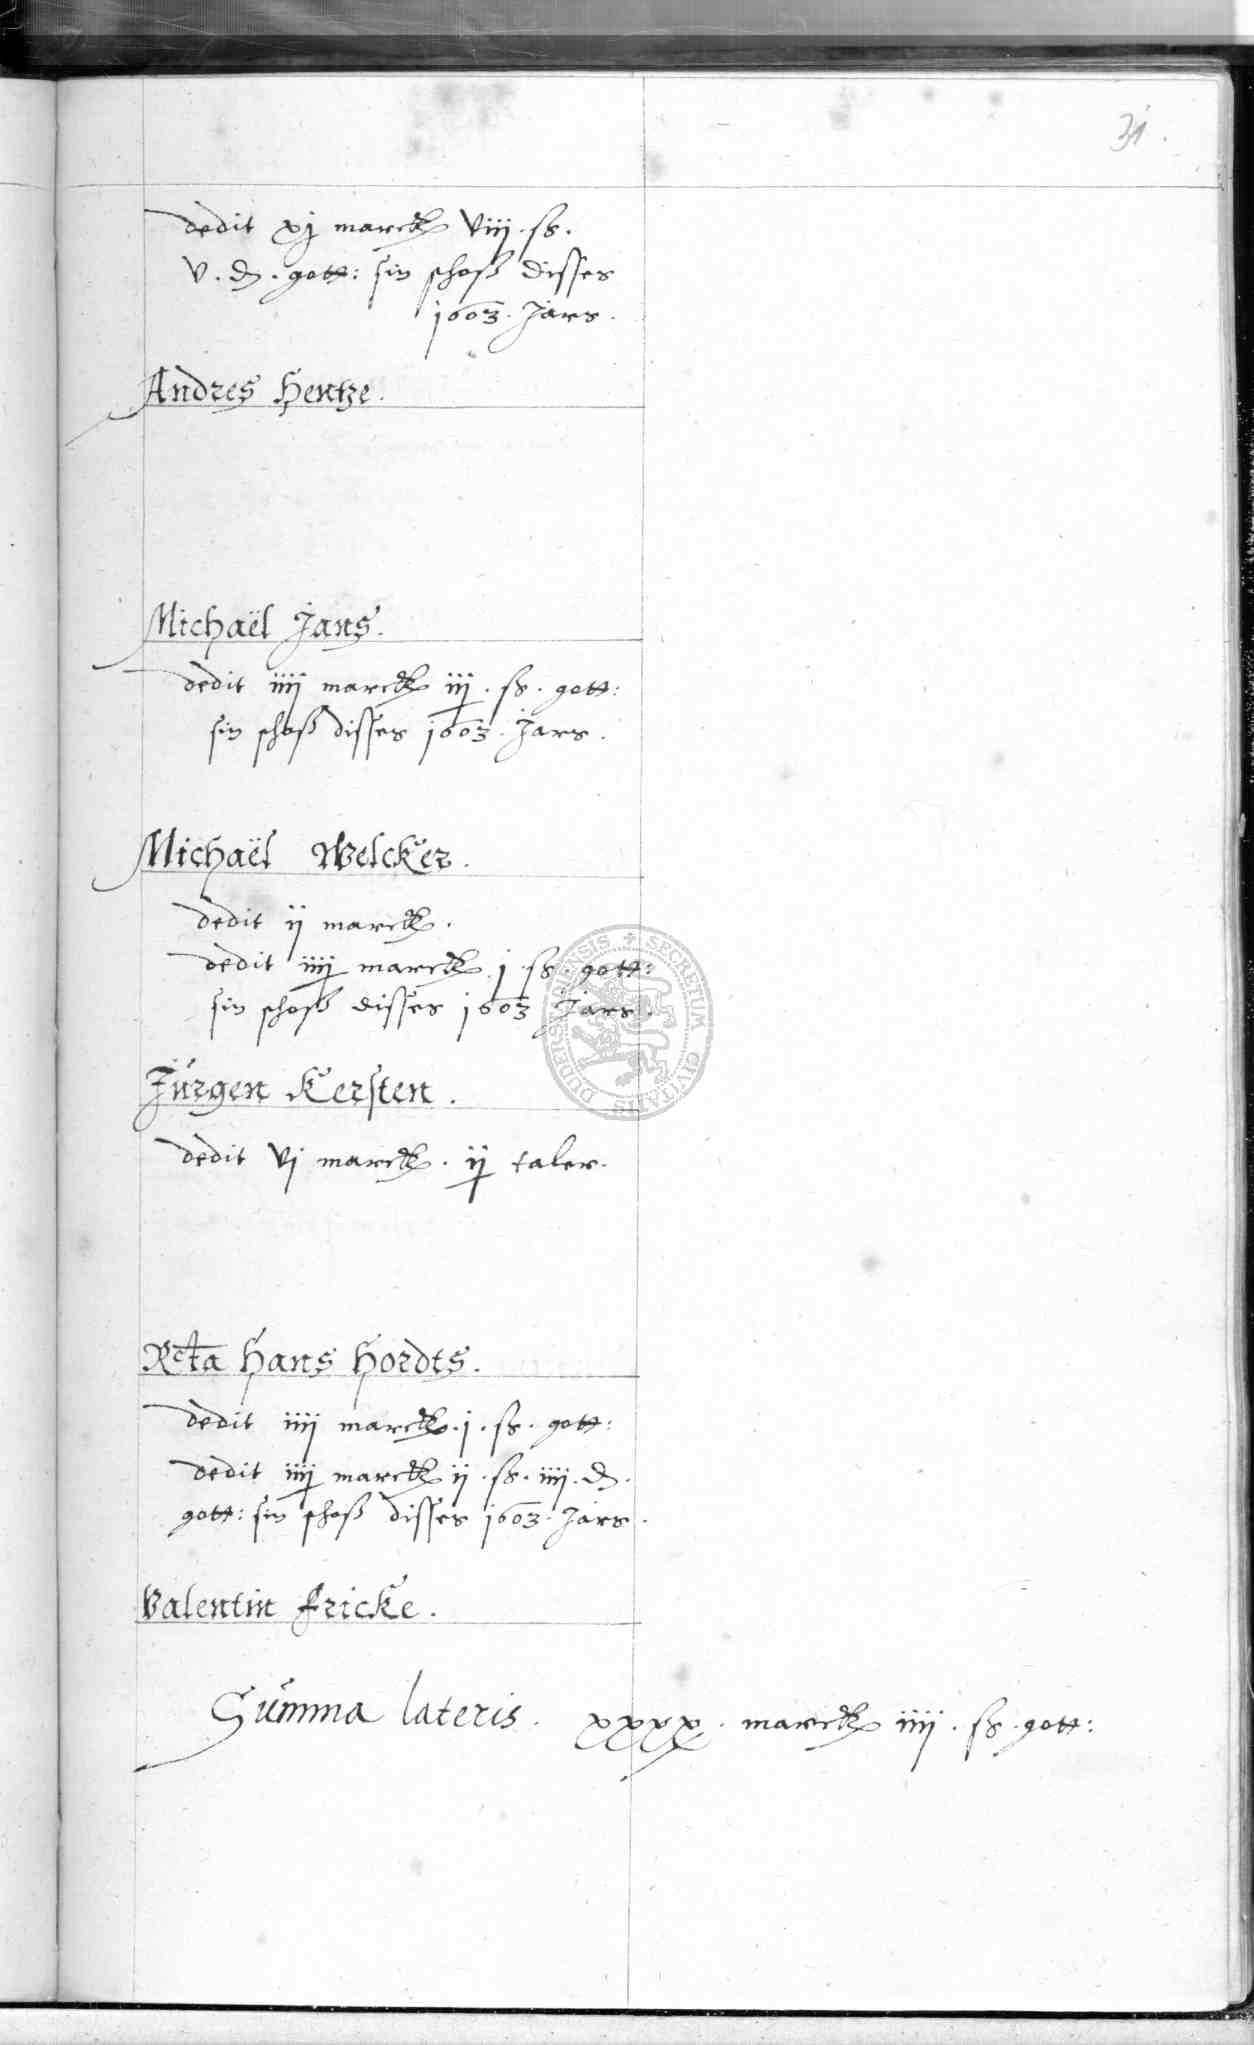 31.
dedit xj marck viij. ß.
v. d. gott: sin schoß disses
1603. Jars.
Andres Hentze.
Michaël Jans.
dedit iiij marck iij. ß. gott:
sin schoß disses 1603. Jars.
Michaël Welcker.
dedit ij marck.
dedit iiij marck j. ß. gott:
sin schoß disses 1603 Jars.
Jürgen Kersten.
dedit vj marck. ij taler.
Rcta Hans Hordts.
dedit iiij marck. j. ß. gott:
dedit iiij marck ij. ß. iiij. d.
gott: sin schoß disses 1603. Jars.
Valentin Fricke.
Summa lateris. xxxx. marck iiij. ß. gott:
SECRETUM CIVITATIS DUDERSTADIENSIS